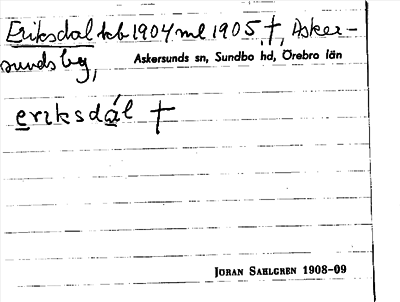 Eriksdal tb 1904 ml 1905 †, Asker-
sunds lbg,
Askersunds sn, Sundbo hd, Örebro län
eriksdál †
JÖRAN SAHLGREN 1908-09